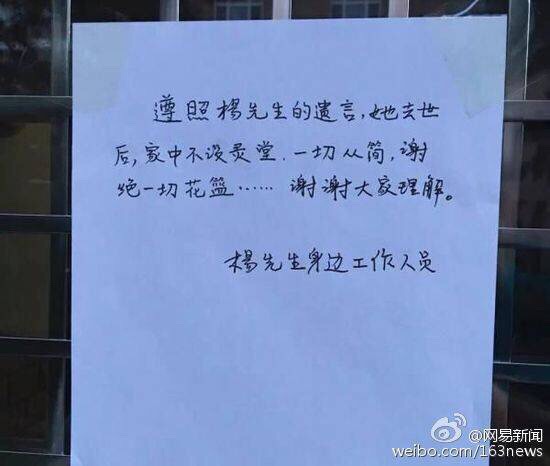 遵照杨先生的遗言,她去世
后,家中不设灵堂.一切从简,谢
绝一切花篮……谢谢大家理解。
杨先生身边工作人员
@网易新闻
weibo.com/163news